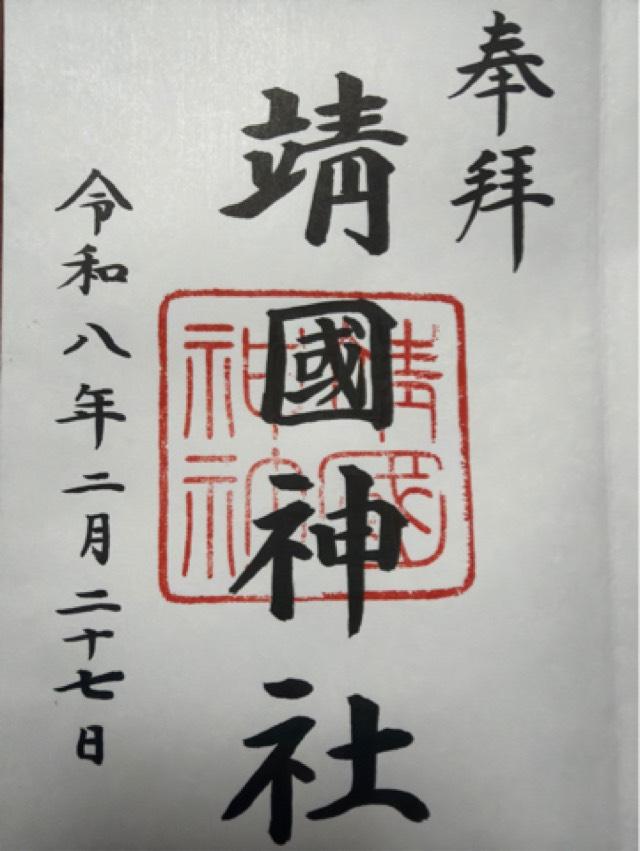 奉拜
靖國神社
令和八年二月二十七日
靖國
神社